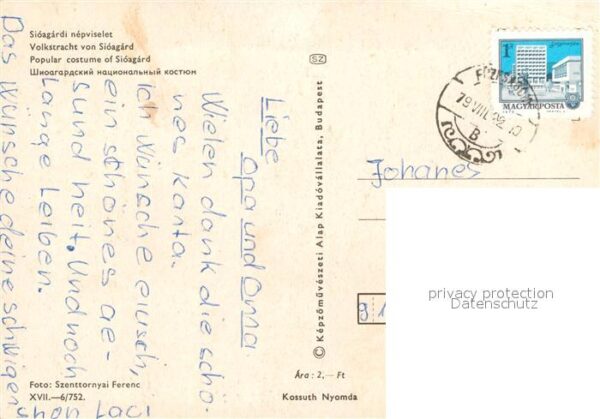 Sióagárdi népviselet
Volkstracht von Sióagárd
Popular costume of Sióagárd
Шиоагардский национальный костюм
SZ
Liebe
Opa und Oma
Wielen dank die schö-
nes Kanta.
Ich Wünsche eiusch,
ein schönes ge-
sund heit. Und noch
Lange Leiben.
Das Wünsche deine schwigen
shon Laci
Foto: Szenttornyai Ferenc
XVII.—6/752.
© Képzőművészeti Alap Kiadóvállalata, Budapest
Ára : 2,— Ft
Kossuth Nyomda
1 Ft
MAGYAR POSTA
79 VIII.
B
Johanes
privacy protection
Datenschutz